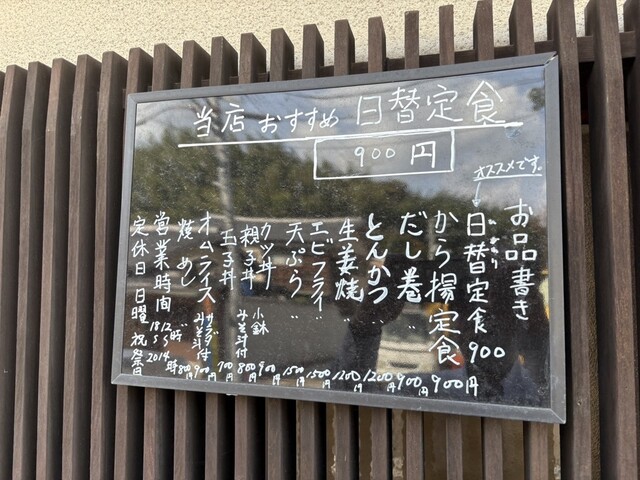 当店おすすめ 日替定食
900円
オススメです。
お品書き
日替定食 900
から揚定食 900円
だし巻 〃 900円
とんかつ 〃 1200円
生姜焼 〃 1200円
エビフライ 〃 1500円
天ぷら 〃 1500円
カツ丼 900円
親子丼 800円
玉子丼 700円
小鉢
みそ汁付
オムライス サラダ付 みそ汁付 900円
焼めし 800円
営業時間 12時〜14時
18〜20
定休日 日曜 祝祭日